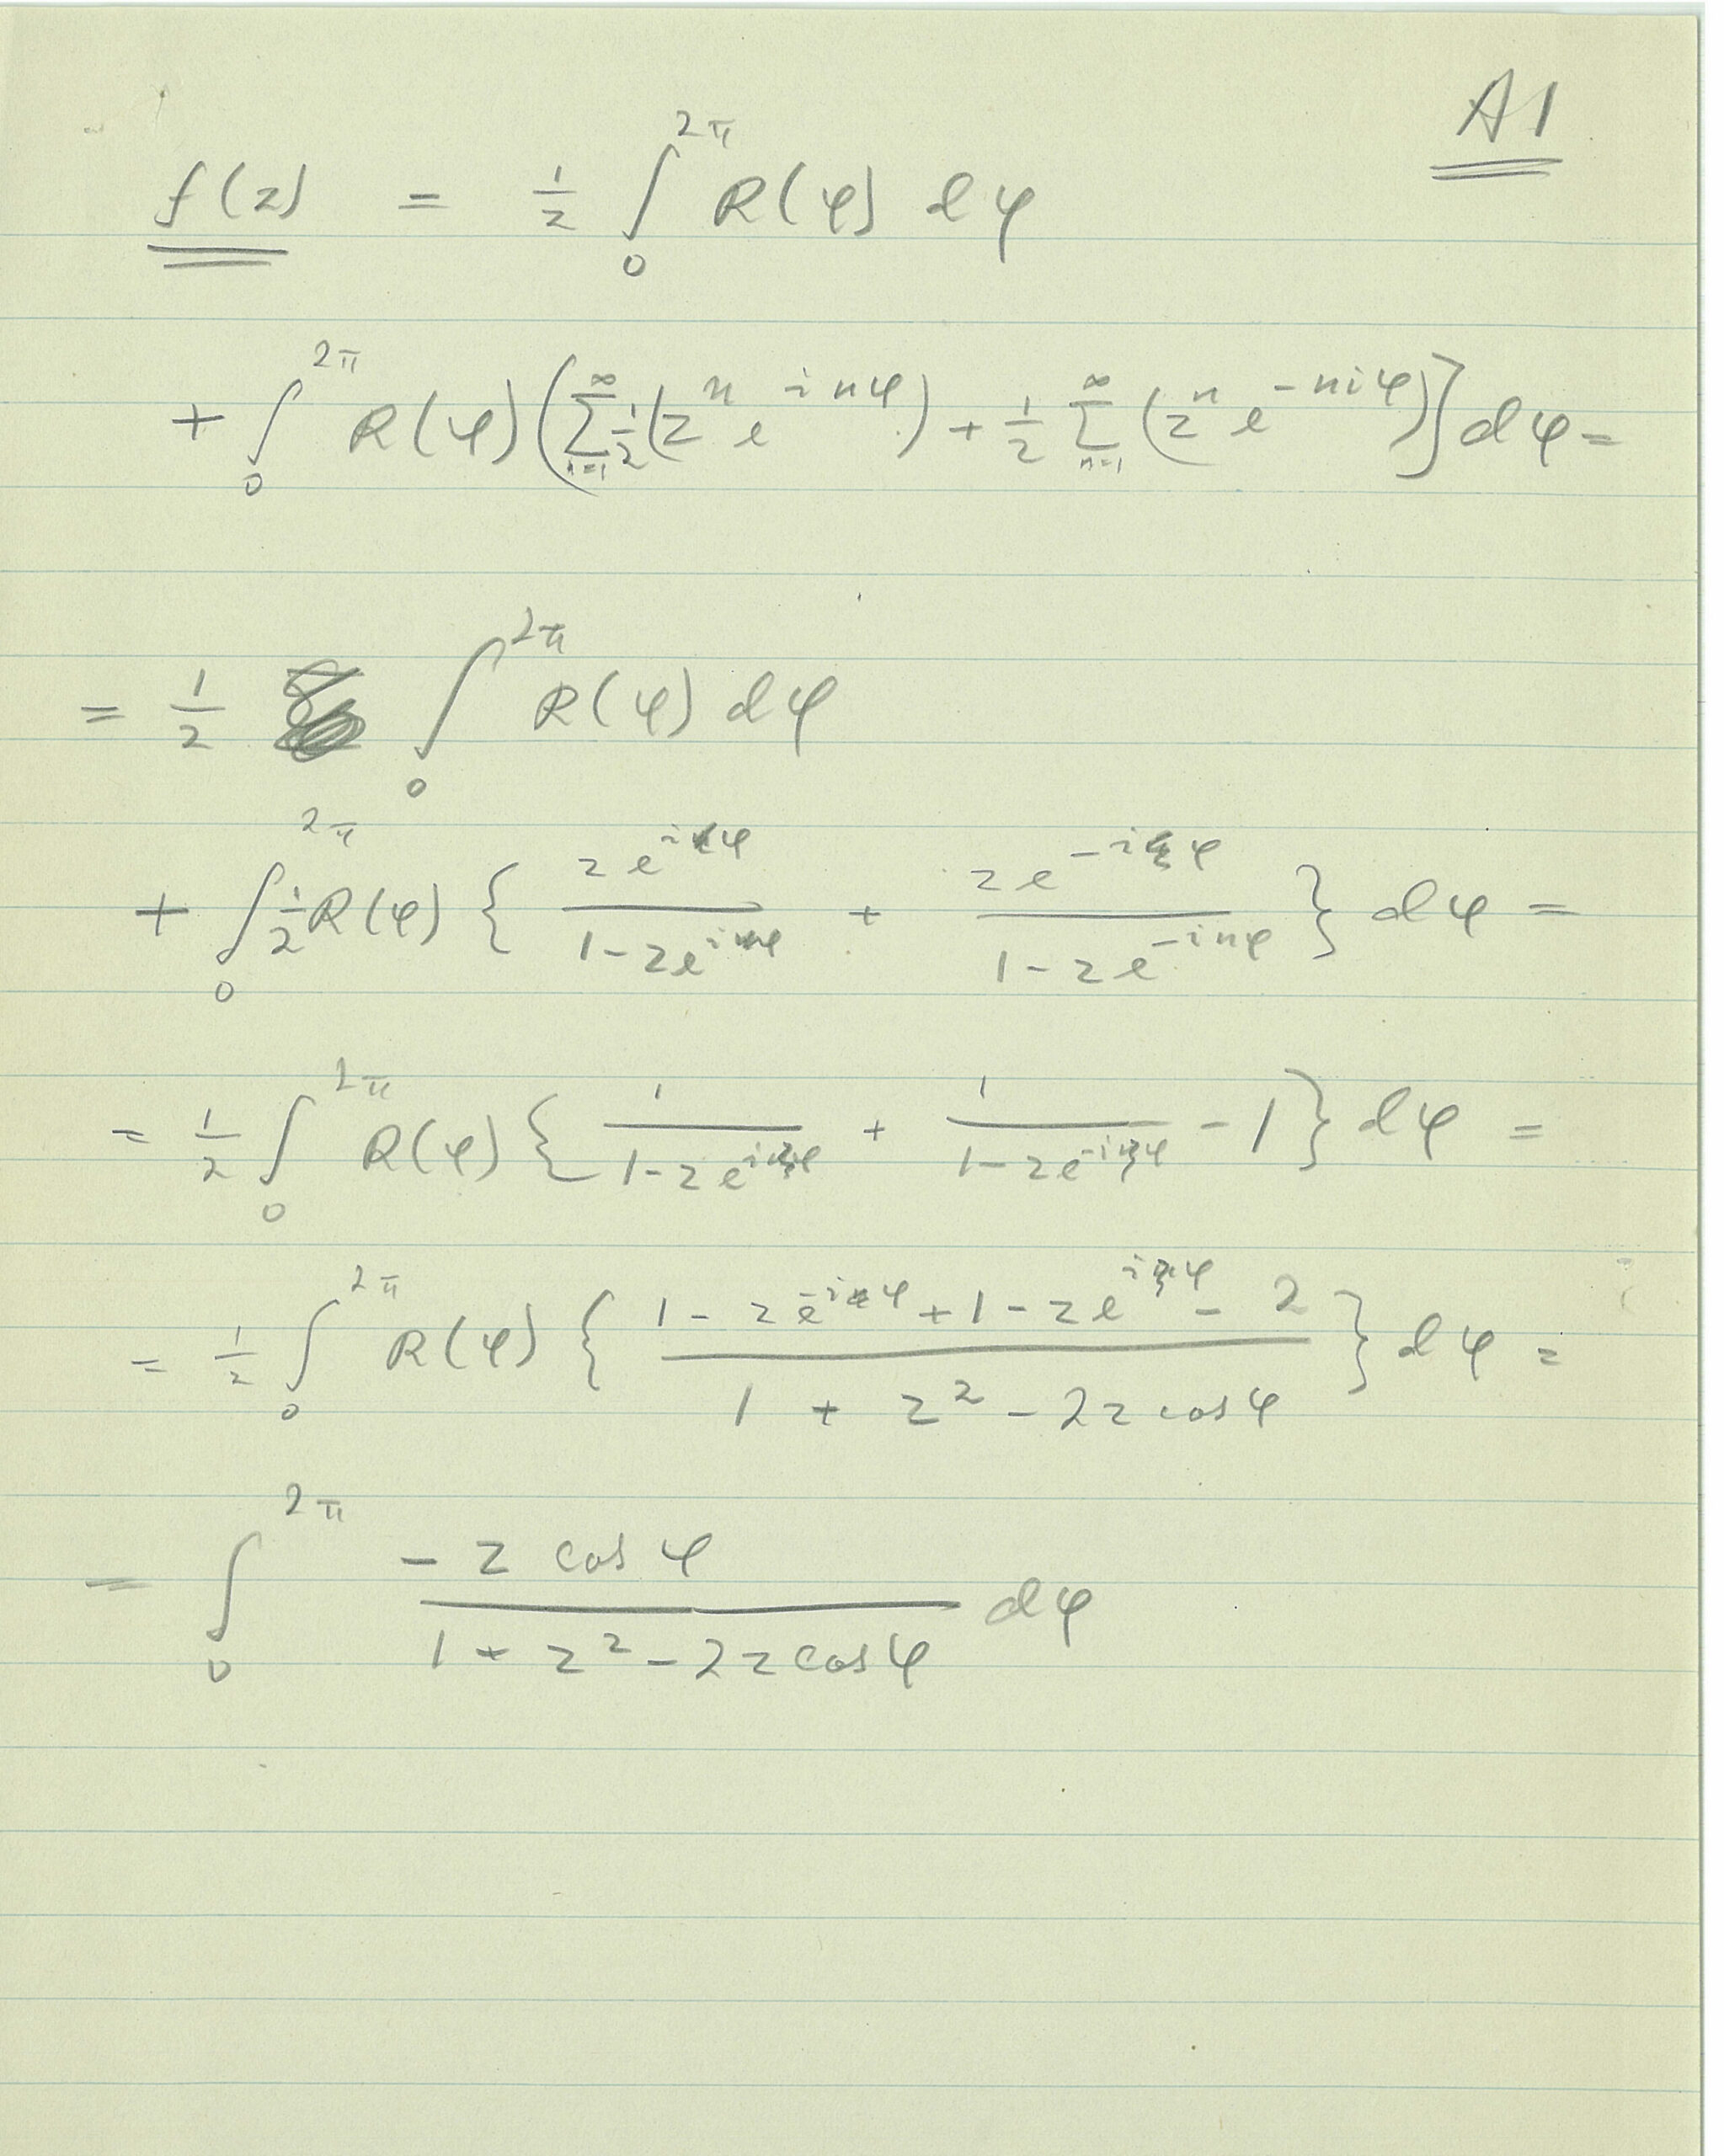 A1
f(z) = 1/2 ∫₀^{2π} R(φ) dφ
+ ∫₀^{2π} R(φ) ( ∑_{n=1}^{∞} 1/2 (z^n e^{inφ}) + 1/2 ∑_{n=1}^{∞} (z^n e^{-niφ}) ] dφ =
= 1/2 ∫₀^{2π} R(φ) dφ
+ ∫₀^{2π} 1/2 R(φ) { z e^{iφ} / (1 - z e^{iφ}) + z e^{-iφ} / (1 - z e^{-inφ}) } dφ =
= 1/2 ∫₀^{2π} R(φ) { 1 / (1 - z e^{iφ}) + 1 / (1 - z e^{-iφ}) - 1 } dφ =
= 1/2 ∫₀^{2π} R(φ) { (1 - z e^{-iφ} + 1 - z e^{iφ} - 2) / (1 + z² - 2z cos φ) } dφ =
= ∫₀^{2π} (- z cos φ) / (1 + z² - 2z cos φ) dφ